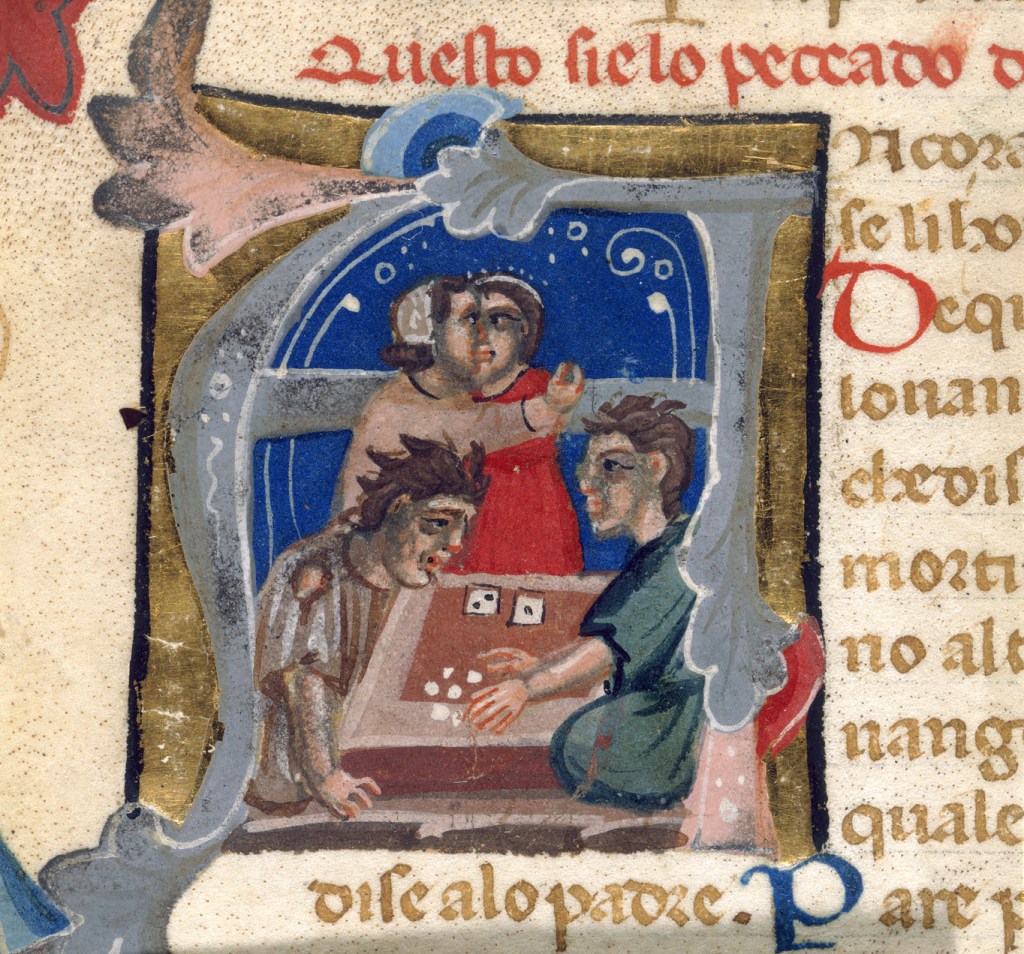 Questo sie lo peccado d
Ncora
se li ho
Dequ
lo nan
che dis
morti
no alt
nang
quale
dise a lo padre. Pare p